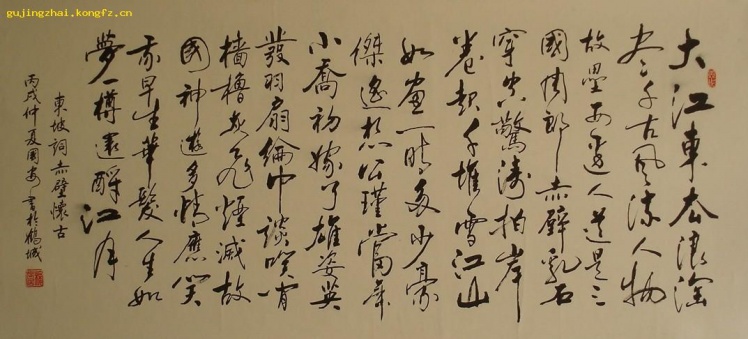 gujingzhai.kongfz.cn
大江東去浪淘
盡千古風流人物
故壘西邊人道是三
國周郎赤壁乱石
穿空驚濤拍岸
卷起千堆雪江山
如畫一時多少豪
傑遙想公瑾當年
小喬初嫁了雄姿英
發羽扇綸巾談笑间
檣櫓灰飛煙滅故
國神遊多情應笑
我早生華髮人生如
夢一樽還酹江月
東坡詞赤壁懷古
丙戌仲夏國安書於鶴城